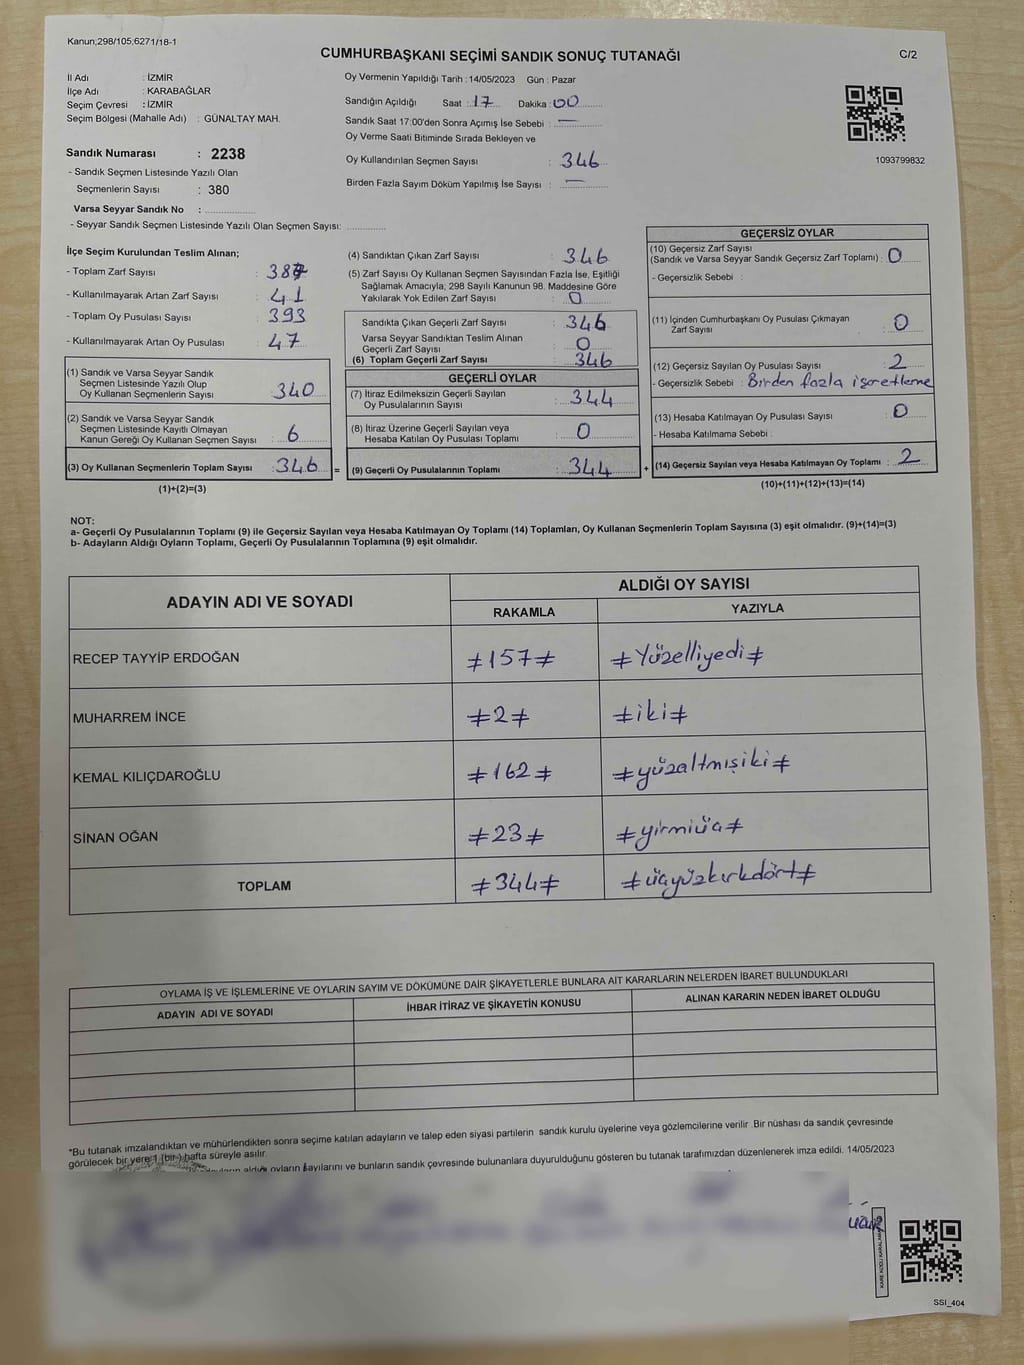 Kanun;298/105;6271/18-1
CUMHURBAŞKANI SEÇİMİ SANDIK SONUÇ TUTANAĞI
C/2
İl Adı : İZMİR
İlçe Adı : KARABAĞLAR
Seçim Çevresi : İZMİR
Seçim Bölgesi (Mahalle Adı) : GÜNALTAY MAH.
Sandık Numarası : 2238
- Sandık Seçmen Listesinde Yazılı Olan
Seçmenlerin Sayısı : 380
Varsa Seyyar Sandık No :
- Seyyar Sandık Seçmen Listesinde Yazılı Olan Seçmen Sayısı:
Oy Vermenin Yapıldığı Tarih : 14/05/2023 Gün : Pazar
Sandığın Açıldığı Saat : 17 Dakika : 00
Sandık Saat 17:00'den Sonra Açımış İse Sebebi : —
Oy Verme Saati Bitiminde Sırada Bekleyen ve
Oy Kullandırılan Seçmen Sayısı : 346
Birden Fazla Sayım Döküm Yapılmış İse Sayısı : —
1093799832
İlçe Seçim Kurulundan Teslim Alınan;
- Toplam Zarf Sayısı : 387
- Kullanılmayarak Artan Zarf Sayısı : 41
- Toplam Oy Pusulası Sayısı : 393
- Kullanılmayarak Artan Oy Pusulası : 47
(1) Sandık ve Varsa Seyyar Sandık
Seçmen Listesinde Yazılı Olup
Oy Kullanan Seçmenlerin Sayısı : 340
(2) Sandık ve Varsa Seyyar Sandık
Seçmen Listesinde Kayıtlı Olmayan
Kanun Gereği Oy Kullanan Seçmen Sayısı : 6
(3) Oy Kullanan Seçmenlerin Toplam Sayısı : 346 =
(1)+(2)=(3)
(4) Sandıktan Çıkan Zarf Sayısı : 346
(5) Zarf Sayısı Oy Kullanan Seçmen Sayısından Fazla İse, Eşitliği
Sağlamak Amacıyla; 298 Sayılı Kanunun 98. Maddesine Göre
Yakılarak Yok Edilen Zarf Sayısı : 0
Sandıkta Çıkan Geçerli Zarf Sayısı : 346
Varsa Seyyar Sandıktan Teslim Alınan
Geçerli Zarf Sayısı : 0
(6) Toplam Geçerli Zarf Sayısı : 346
GEÇERLİ OYLAR
(7) İtiraz Edilmeksizin Geçerli Sayılan
Oy Pusulalarının Sayısı : 344
(8) İtiraz Üzerine Geçerli Sayılan veya
Hesaba Katılan Oy Pusulası Toplamı : 0
(9) Geçerli Oy Pusulalarının Toplamı : 344 +
GEÇERSİZ OYLAR
(10) Geçersiz Zarf Sayısı
(Sandık ve Varsa Seyyar Sandık Geçersiz Zarf Toplamı) : 0
- Geçersizlik Sebebi :
(11) İçinden Cumhurbaşkanı Oy Pusulası Çıkmayan
Zarf Sayısı : 0
(12) Geçersiz Sayılan Oy Pusulası Sayısı : 2
- Geçersizlik Sebebi : Birden fazla işaretleme
(13) Hesaba Katılmayan Oy Pusulası Sayısı : 0
- Hesaba Katılmama Sebebi :
(14) Geçersiz Sayılan veya Hesaba Katılmayan Oy Toplamı : 2
(10)+(11)+(12)+(13)=(14)
NOT:
a- Geçerli Oy Pusulalarının Toplamı (9) ile Geçersiz Sayılan veya Hesaba Katılmayan Oy Toplamı (14) Toplamları, Oy Kullanan Seçmenlerin Toplam Sayısına (3) eşit olmalıdır. (9)+(14)=(3)
b- Adayların Aldığı Oyların Toplamı, Geçerli Oy Pusulalarının Toplamına (9) eşit olmalıdır.
ADAYIN ADI VE SOYADI ALDIĞI OY SAYISI
RAKAMLA YAZIYLA
RECEP TAYYİP ERDOĞAN ≠157≠ ≠Yüzelliyedi≠
MUHARREM İNCE ≠2≠ ≠iki≠
KEMAL KILIÇDAROĞLU ≠162≠ ≠yüzaltmışiki≠
SİNAN OĞAN ≠23≠ ≠yirmiüç≠
TOPLAM ≠344≠ ≠üçyüzkırkdört≠
OYLAMA İŞ VE İŞLEMLERİNE VE OYLARIN SAYIM VE DÖKÜMÜNE DAİR ŞİKAYETLERLE BUNLARA AİT KARARLARIN NELERDEN İBARET BULUNDUKLARI
ADAYIN ADI VE SOYADI İHBAR İTİRAZ VE ŞİKAYETİN KONUSU ALINAN KARARIN NEDEN İBARET OLDUĞU
*Bu tutanak imzalandıktan ve mühürlendikten sonra seçime katılan adayların ve talep eden siyasi partilerin sandık kurulu üyelerine veya gözlemcilerine verilir. Bir nüshası da sandık çevresinde
görülecek bir yere 1 (bir) hafta süreyle asılır.
aldığı oyların sayılarını ve bunların sandık çevresinde bulunanlara duyurulduğunu gösteren bu tutanak tarafımızdan düzenlenerek imza edildi. 14/05/2023
KARE KODU KARALAMAYINIZ
SSI_404